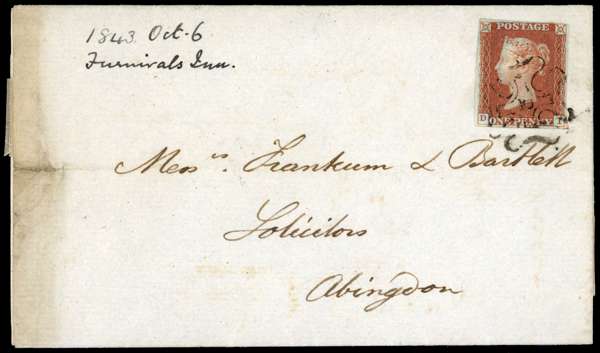 1843 Oct. 6
Furnivals Inn.
POSTAGE
D
ONE PENNY
Messrs. Frankum & Bartlett
Solicitors
Abingdon